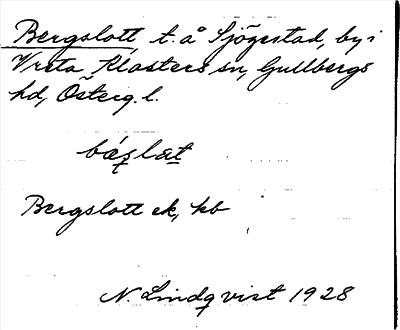 Bergslott, t. å Sjögestad, by i
Vreta Klosters sn, Gullbergs
hd, Österg. l.
bæ̀ʂlat
Bergslott ek, kb
N. Lindqvist 1928